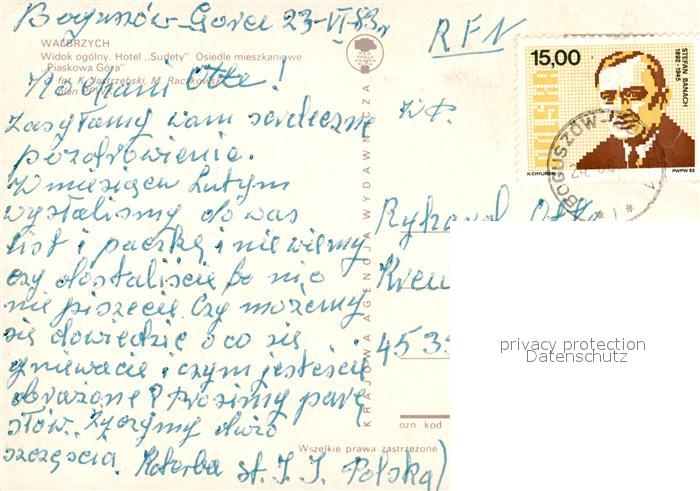 Boguszów-Gorce 23-VI-83r
RFN
WAŁBRZYCH
Widok ogólny. Hotel „Sudety”. Osiedle mieszkaniowe
„Piaskowa Góra”
fot. K. Jastrzębski, M. Raczkowski
Kochani Otte!
Zasyłamy wam serdeczne
pozdrowienia.
W miesiącu Lutym
wysłaliśmy do was
list i paczkę i nie wiemy
czy dostaliście bo nic
nie piszecie Czy możemy
się dowiedzieć o co się
gniewacie i czym jesteście
obrażone? Prosimy parę
słów. Życzymy dużo
szczęścia. Koterba st. J. J. Polska
KRAJOWA AGENCJA WYDAWNICZA
15,00
POLSKA
STEFAN BANACH
1892-1945
H.CHYLIŃSKI
PWPW 83
BOGUSZÓW
WP.
Ryhard Otte
453
ozn. kod.
Wszelkie prawa zastrzeżone
privacy protection
Datenschutz